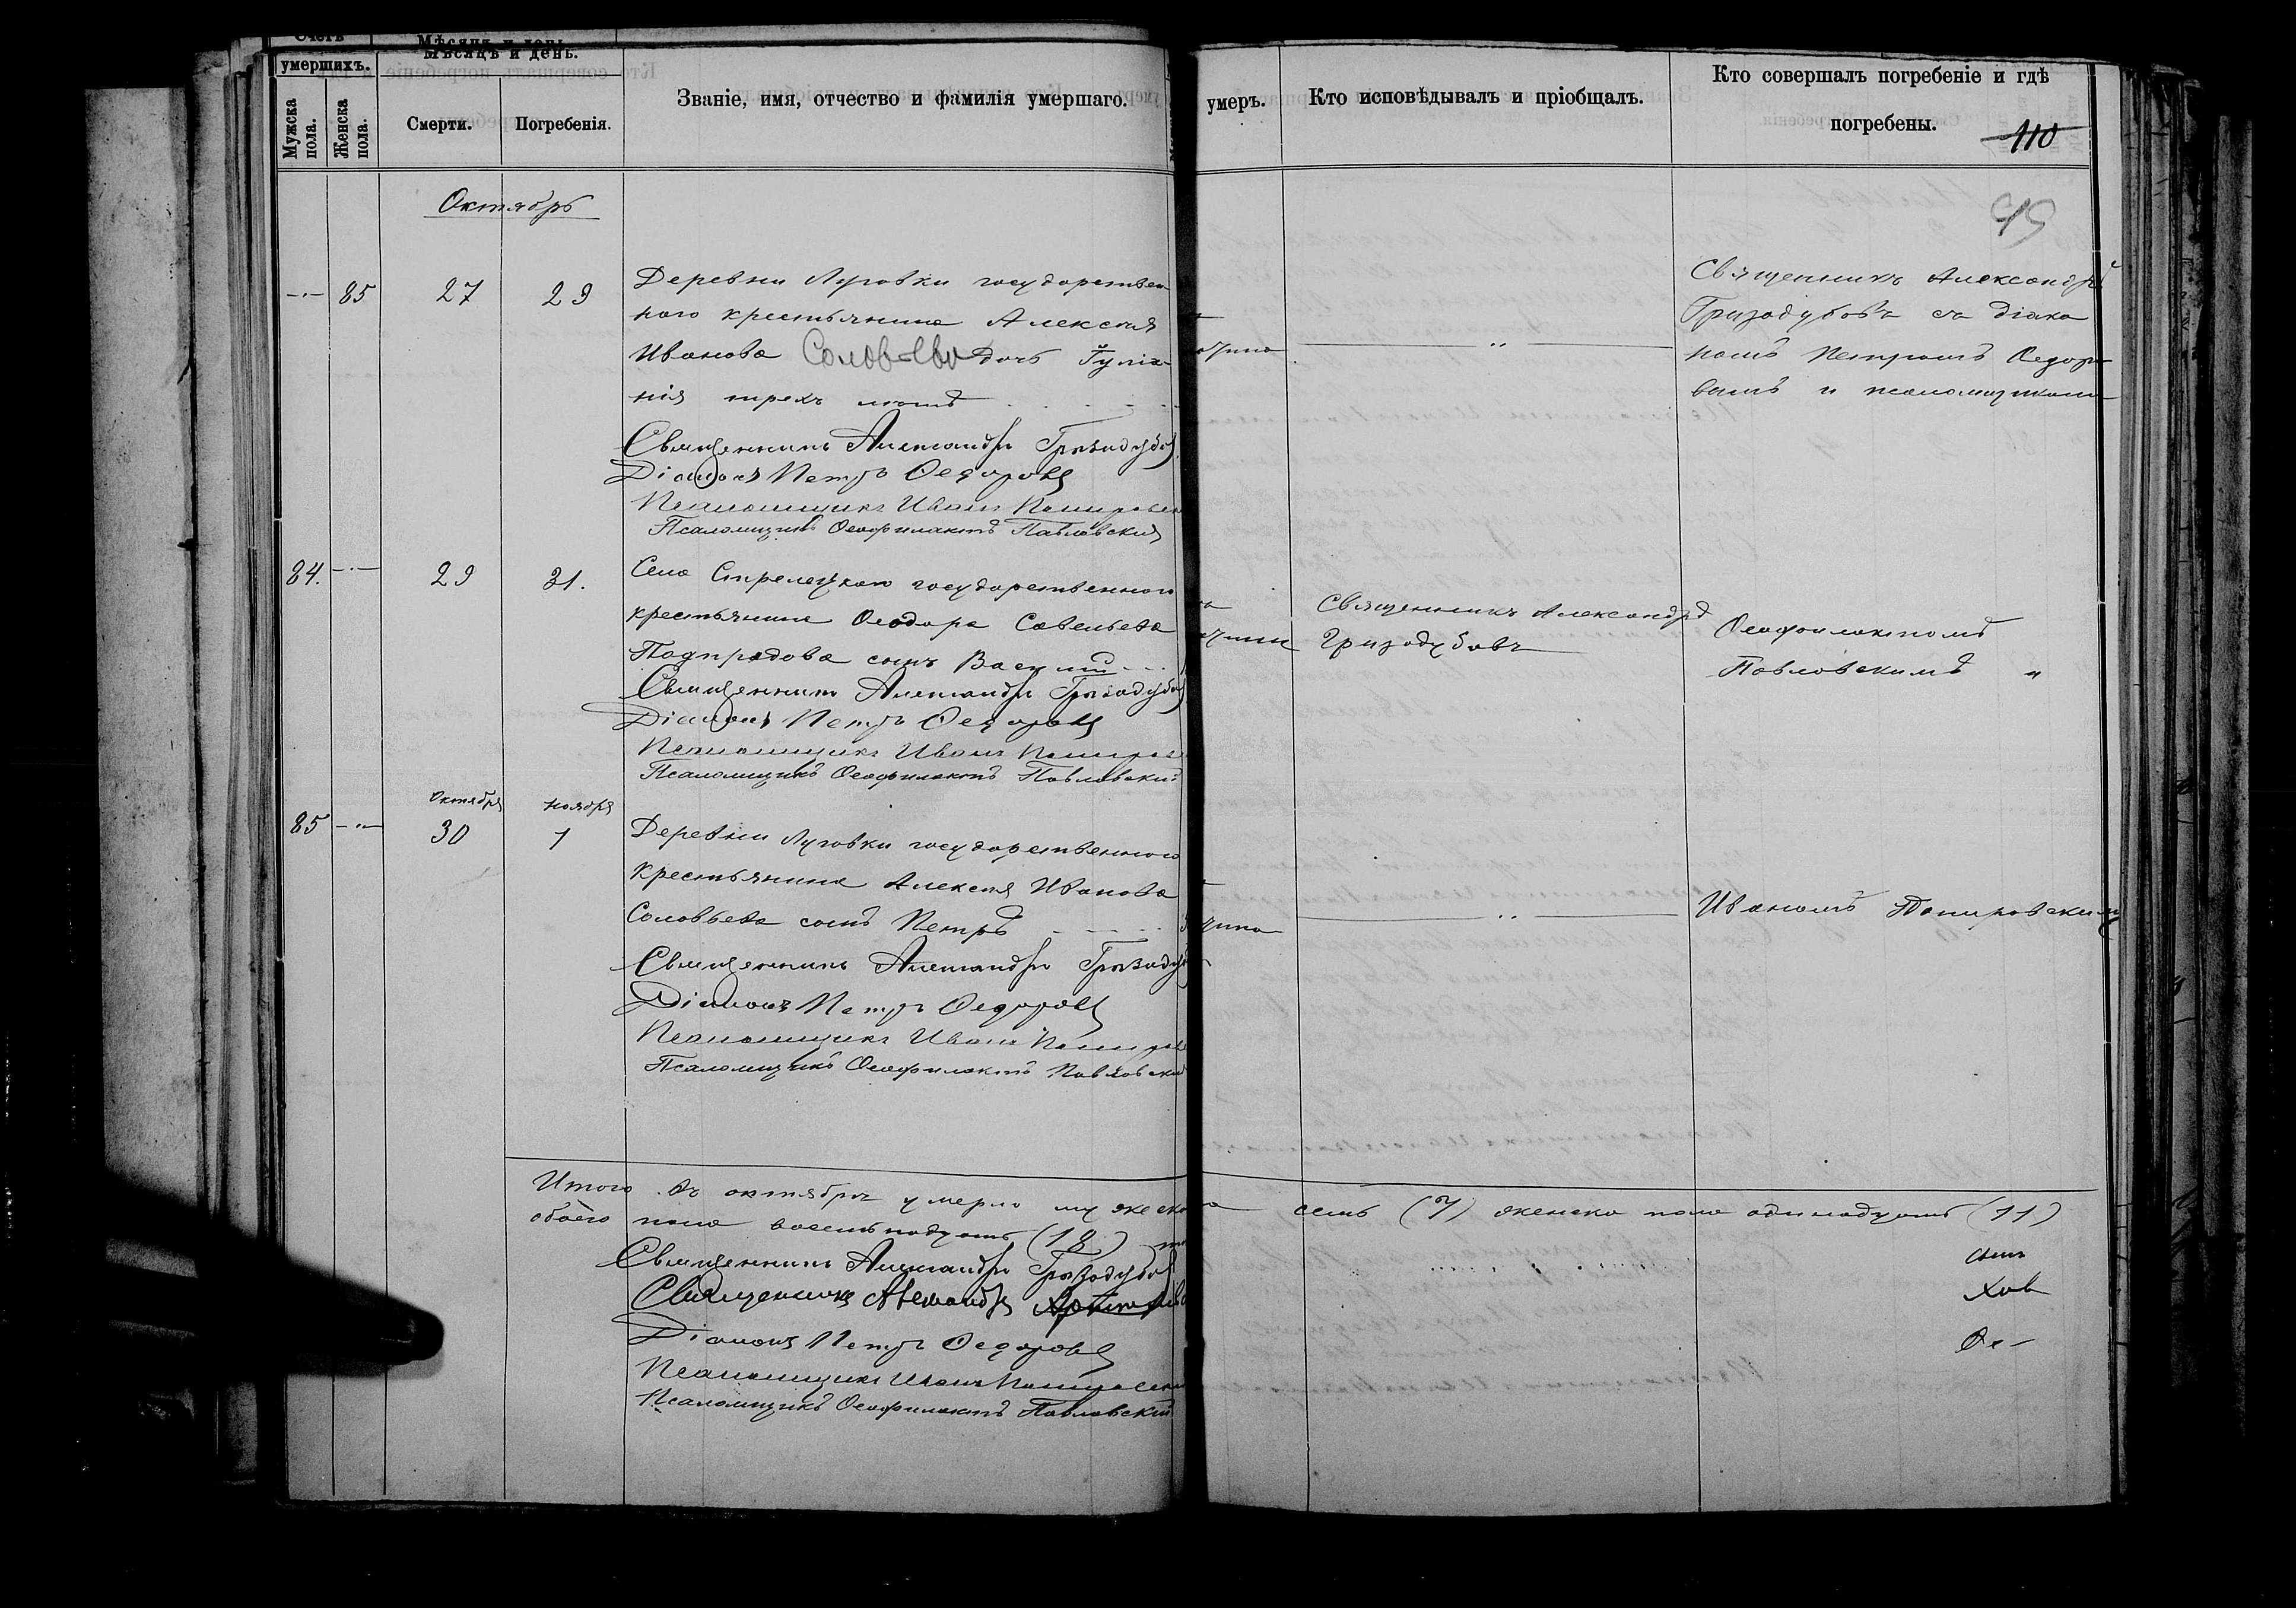 Мѣсяцъ и день.
умершихъ.
Мужска пола.
Женска пола.
Смерти.
Погребенія.
Званіе, имя, отчество и фамилія умершаго.
умеръ.
Кто исповѣдывалъ и пріобщалъ.
Кто совершалъ погребеніе и гдѣ
погребены.
110
Октябрь
85 27 29
Деревни Луговки государствен-
наго крестьянина Алексѣя
Иванова Соловьева дочь
нія трехъ лѣтъ
Священникъ Александръ Гризодубовъ
Діаконъ Петръ Ѳедоровъ
Псаломщикъ Иванъ
Псаломщикъ Ѳеофилактъ Павловскій
Священникъ Александръ
Гризодубовъ съ діако
номъ Петромъ Ѳедоро
вымъ и псаломщикомъ
84. 29 31.
Села Стрелецкаго государственнаго
крестьянина Ѳеодора Савельева
сынъ Василій
Священникъ Александръ Гризодубовъ
Діаконъ Петръ Ѳедоровъ
Псаломщикъ Иванъ
Псаломщикъ Ѳеофилактъ Павловскій
Священникъ Александръ
Гризодубовъ
Ѳеофилактомъ
Павловскимъ
85 Октября 30 Ноября 1
Деревни Луговки государственнаго
крестьянина Алексѣя Иванова
Соловьева сынъ Петръ
Священникъ Александръ Гризодубовъ
Діаконъ Петръ Ѳедоровъ
Псаломщикъ Иванъ
Псаломщикъ Ѳеофилактъ Павловскій
Иваномъ Папировскимъ
Итого въ октябрѣ умерло мужеска
семь (7) женска пола одинадцать (11)
обоего пола восемнадцать (18)
Священникъ Александръ Гризодубовъ
Священникъ Александръ
Діаконъ Петръ Ѳедоровъ
Псаломщикъ Иванъ
Псаломщикъ Ѳеофилактъ Павловскій
хов
Ѳе-